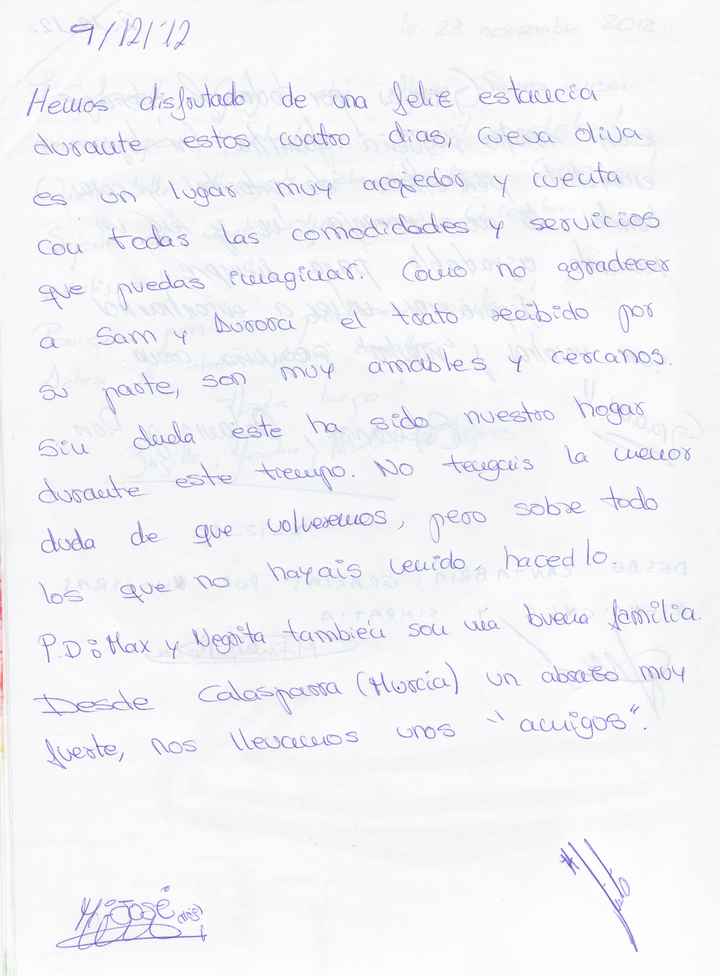 9/12/12
Hemos disfrutado de una feliz estancia
durante estos cuatro dias, Cueva oliva
es un lugar muy acojedor y cuenta
con todas las comodidades y servicios
que puedas imaginar. Como no agradecer
a Sam y Aurora el trato recibido por
su parte, son muy amables y cercanos.
Sin duda este ha sido nuestro hogar
durante este tiempo. No tengais la menor
duda de que volveremos, pero sobre todo
los que no hayais venido, hacedlo.
P.D: Max y Negrita también son una buena familia.
Desde Calasparra (Murcia) un abrazo muy
fuerte, nos llevamos unos "amigos".
Mª José